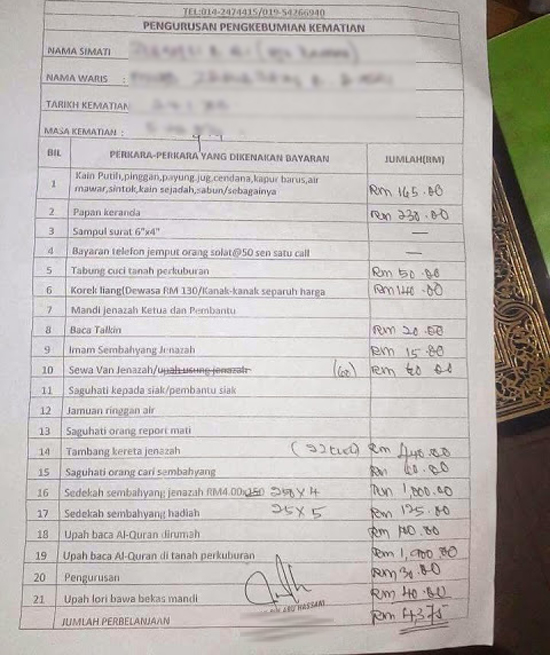 TEL:014-2474415/019-54266940
PENGURUSAN PENGKEBUMIAN KEMATIAN
NAMA SIMATI :
NAMA WARIS :
TARIKH KEMATIAN
MASA KEMATIAN :
BIL PERKARA-PERKARA YANG DIKENAKAN BAYARAN JUMLAH(RM)
1 Kain Putih,pinggan,payung,jug,cendana,kapur barus,air
mawar,sintok,kain sejadah,sabun/sebagainya Rm 145.00
2 Papan keranda Rm 230.00
3 Sampul surat 6"x4" —
4 Bayaran telefon jemput orang solat@50 sen satu call —
5 Tabung cuci tanah perkuburan Rm 50.00
6 Korek liang(Dewasa RM 130/Kanak-kanak separuh harga Rm 140.00
7 Mandi jenazah Ketua dan Pembantu
8 Baca Talkin Rm 20.00
9 Imam Sembahyang Jenazah Rm 15.00
10 Sewa Van Jenazah/upah usung jenazah (60) Rm 60.00
11 Saguhati kepada siak/pembantu siak
12 Jamuan ringgan air
13 Saguhati orang report mati
14 Tambang kereta jenazah Rm 440.00
15 Saguhati orang cari sembahyang Rm 60.00
16 Sedekah sembahyang jenazah RM4.00x250 250 x 4 Rm 1,000.00
17 Sedekah sembahyang hadiah 25 x 5 Rm 125.00
18 Upah baca Al-Quran dirumah Rm 100.00
19 Upah baca Al-Quran di tanah perkuburan Rm 1,900.00
20 Pengurusan Rm 30.00
21 Upah lori bawa bekas mandi Rm 40.00
ABU HASSAN
JUMLAH PERBELANJAAN Rm 4375